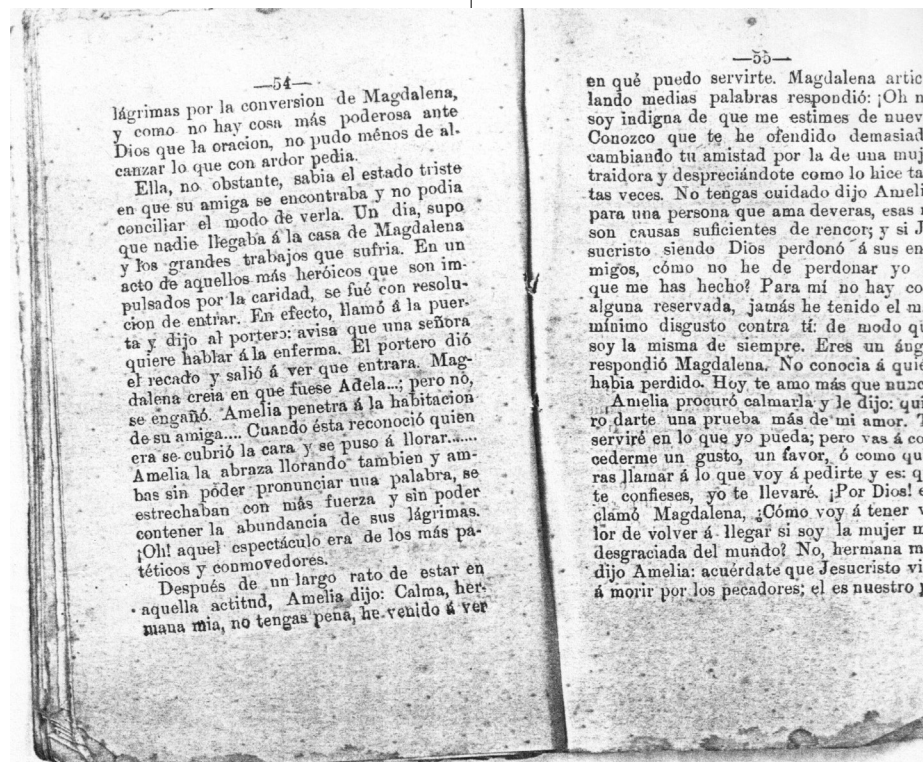 —54—
lágrimas por la conversion de Magdalena,
y como no hay cosa más poderosa ante
Dios que la oracion, no pudo ménos de al-
canzar lo que con ardor pedia.
Ella, no obstante, sabia el estado triste
en que su amiga se encontraba y no podia
conciliar el modo de verla. Un dia, supo
que nadie llegaba á la casa de Magdalena
y los grandes trabajos que sufria. En un
acto de aquellos más heróicos que son im-
pulsados por la caridad, se fué con resolu-
cion de entrar. En efecto, llamó á la puer-
ta y dijo al portero: avisa que una señora
quiere hablar á la enferma. El portero dió
el recado y salió á ver que entrara. Mag-
dalena creia en que fuese Adela...; pero no,
se engañó. Amelia penetra á la habitacion
de su amiga.... Cuando ésta reconoció quien
era se cubrió la cara y se puso á llorar.......
Amelia la abraza llorando tambien y am-
bas sin poder pronunciar una palabra, se
estrechaban con más fuerza y sin poder
contener la abundancia de sus lágrimas.
¡Oh! aquel espectáculo era de los más pa-
téticos y conmovedores.
Después de un largo rato de estar en
aquella actitud, Amelia dijo: Calma, her-
mana mia, no tengas pena, he venido á ver
—55—
en qué puedo servirte. Magdalena artic
lando medias palabras respondió: ¡Oh n
soy indigna de que me estimes de nuev
Conozco que te he ofendido demasiad
cambiando tu amistad por la de una muj
traidora y despreciándote como lo hice ta
tas veces. No tengas cuidado dijo Ameli
para una persona que ama deveras, esas
son causas suficientes de rencor; y si J
sucristo siendo Dios perdonó á sus en
migos, cómo no he de perdonar yo
que me has hecho? Para mí no hay co
alguna reservada, jamás he tenido el m
mínimo disgusto contra tí: de modo qu
soy la misma de siempre. Eres un áng
respondió Magdalena. No conocia á quié
habia perdido. Hoy te amo más que nunc
Amelia procuró calmarla y le dijo: qui
ro darte una prueba más de mi amor. T
serviré en lo que yo pueda; pero vas á co
cederme un gusto, un favor, ó como qu
ras llamar á lo que voy á pedirte y es: q
te confieses, yo te llevaré. ¡Por Dios! e
clamó Magdalena, ¿Cómo voy á tener v
lor de volver á llegar si soy la mujer m
desgraciada del mundo? No, hermana m
dijo Amelia: acuérdate que Jesucristo vi
á morir por los pecadores; el es nuestro